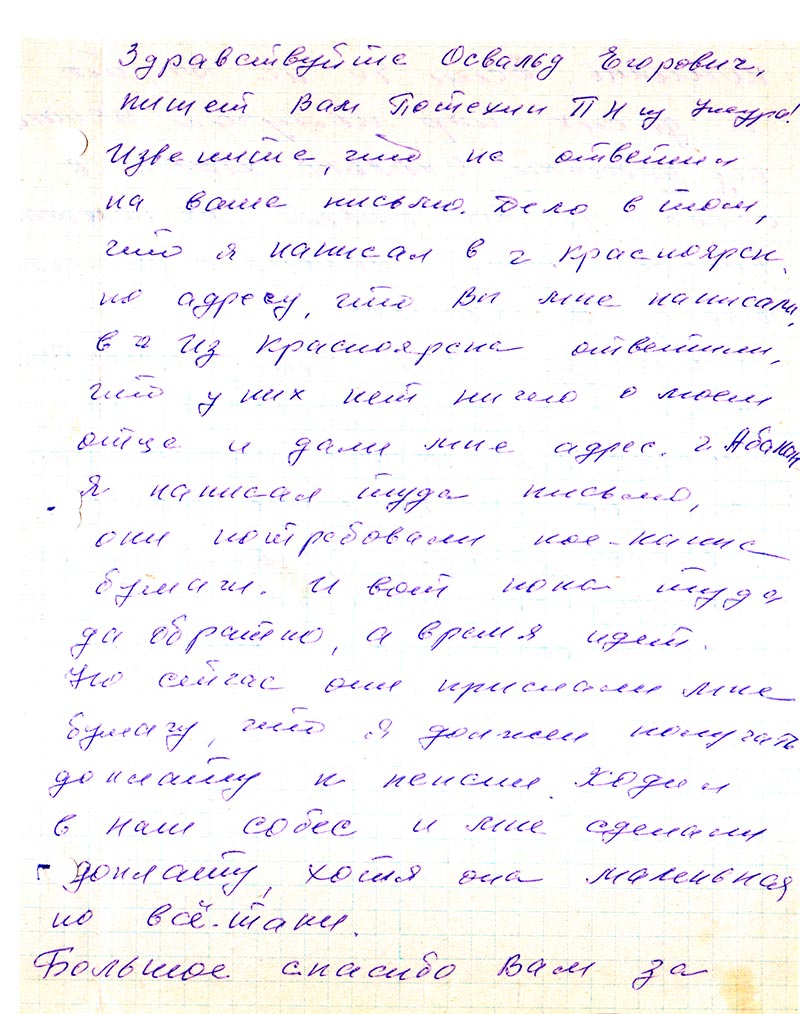 Здравствуйте Освальд Егорович,
пишет Вам Потехин П Н из Ужура!
Извените, что не ответил
на ваше письмо. Дело в том,
что я написал в г Красноярск
по адресу, что Вы мне написали,
в г Из Красноярска ответили,
что у них нет ничего о моем
отце и дали мне адрес. г. Абакан
Я написал туда письмо,
они потребовали кое-какие
бумаги. И вот пока туда
да обратно, а время идет.
Но сейчас они прислали мне
бумагу, что я должен получать
доплату к пенсии. Ходил
в наш собес и мне сделали
доплату, хотя она маленькая
но всё-таки.
Большое спасибо Вам за